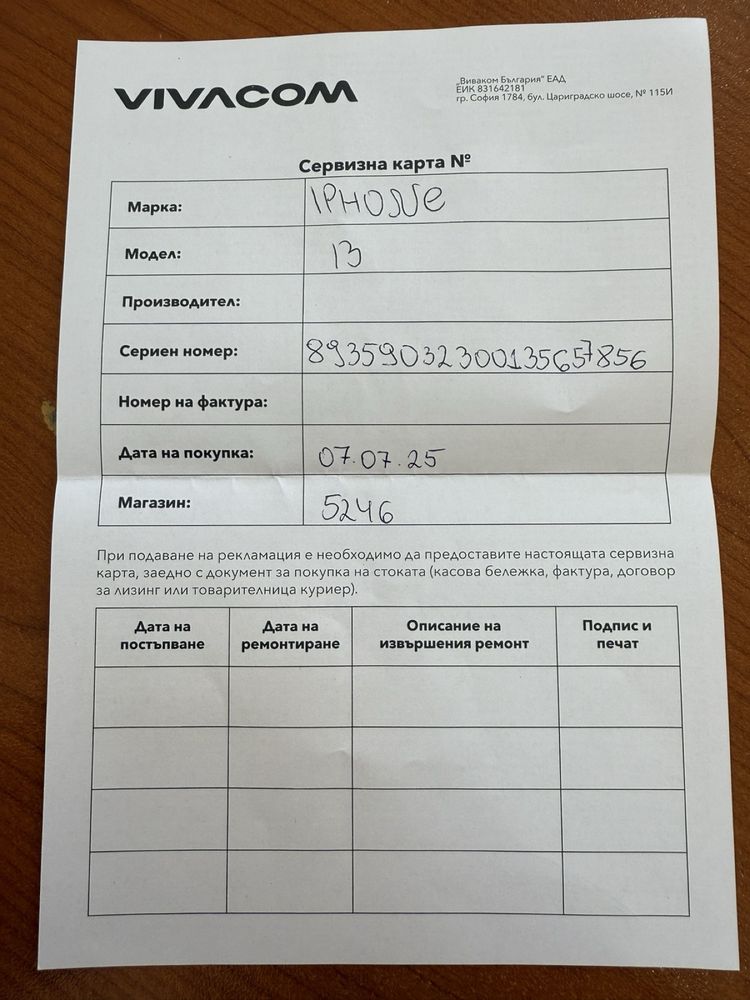 VIVACOM
„Виваком България" ЕАД
ЕИК 831642181
гр. София 1784, бул. Цариградско шосе, № 115И
Сервизна карта №
Марка: IPHONe
Модел: 13
Производител:
Сериен номер: 89359032300135657856
Номер на фактура:
Дата на покупка: 07.07.25
Магазин: 5246
При подаване на рекламация е необходимо да предоставите настоящата сервизна
карта, заедно с документ за покупка на стоката (касова бележка, фактура, договор
за лизинг или товарителница куриер).
Дата на постъпване
Дата на ремонтиране
Описание на извършения ремонт
Подпис и печат